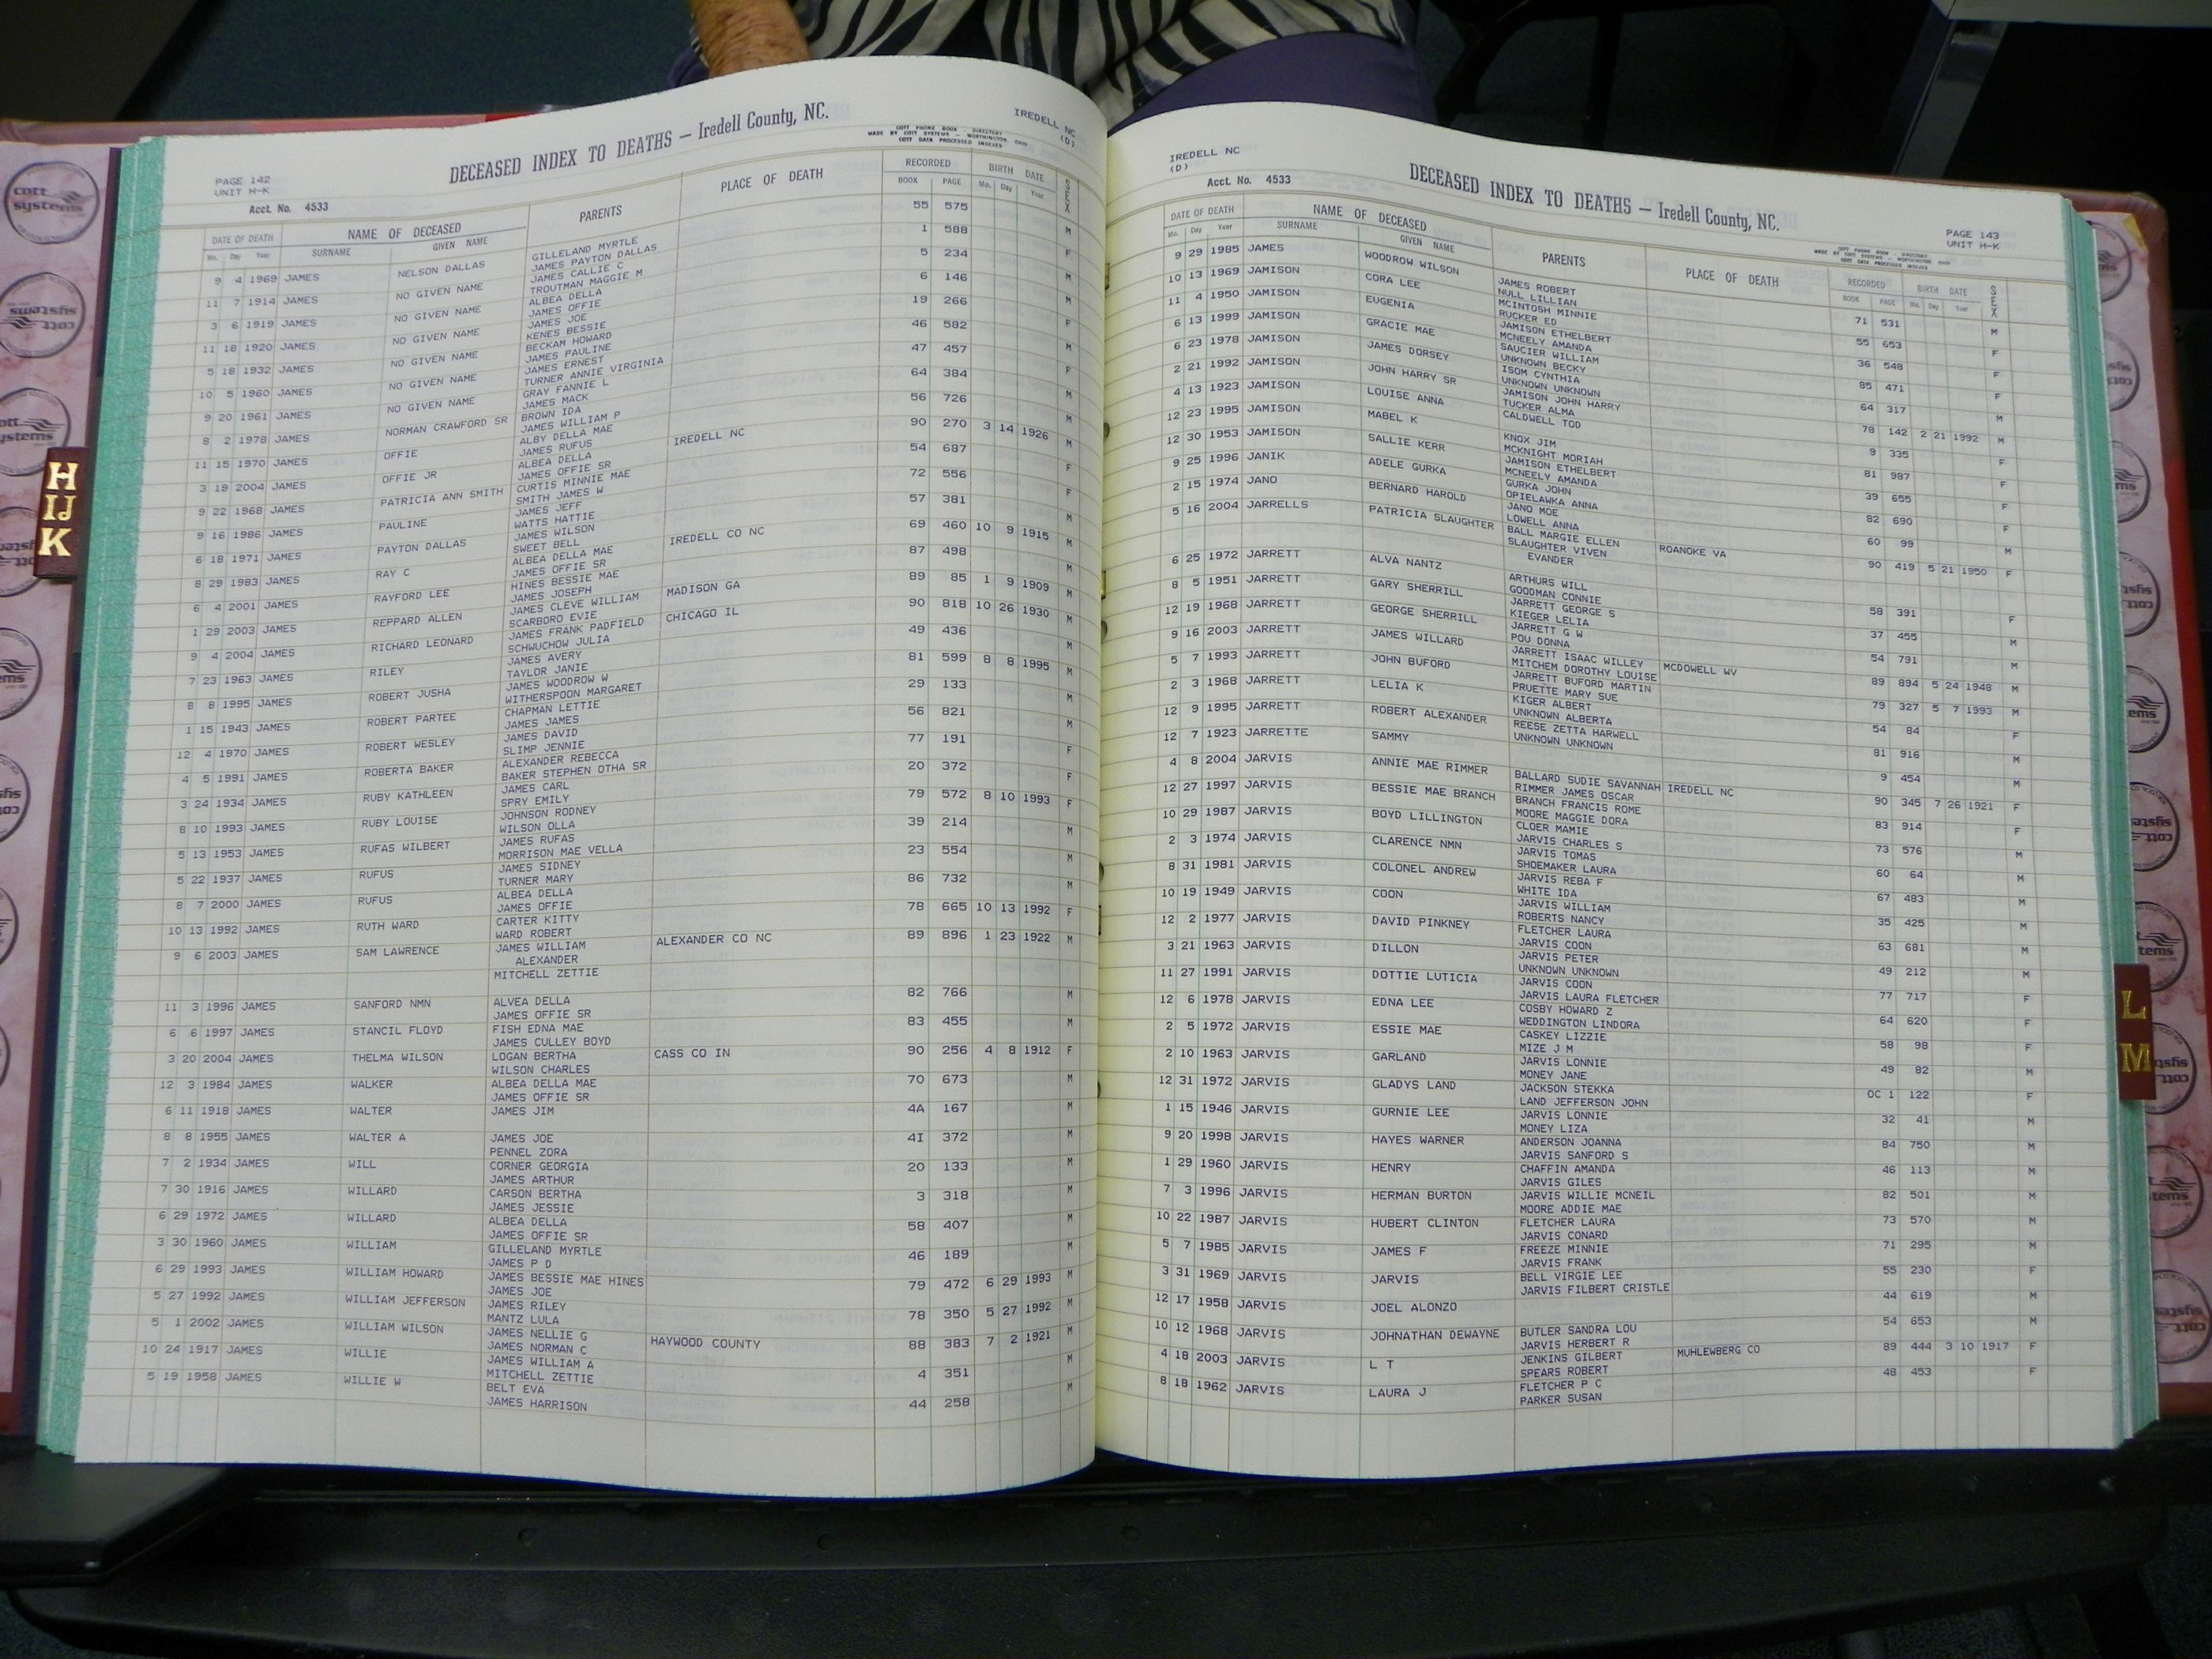 DECEASED INDEX TO DEATHS — Iredell County, NC.
IREDELL NC
(D)
COTT PHONE BOOK - DIRECTORY
MADE BY COTT SYSTEMS - WORTHINGTON, OHIO
COTT DATA PROCESSED INDEXES
PAGE 142
UNIT H-K
Acct. No. 4533
DATE OF DEATH NAME OF DECEASED PARENTS PLACE OF DEATH RECORDED BIRTH DATE SEX
Mo. Day Year SURNAME GIVEN NAME BOOK PAGE Mo. Day Year
9 4 1969 JAMES NELSON DALLAS GILLELAND MYRTLE 55 575 M
JAMES PAYTON DALLAS
11 7 1914 JAMES NO GIVEN NAME JAMES CALLIE C 1 588 F
TROUTMAN MAGGIE M
3 6 1919 JAMES NO GIVEN NAME ALBEA DELLA 5 234 M
JAMES OFFIE
11 18 1920 JAMES NO GIVEN NAME JAMES JOE 6 146 M
KENES BESSIE
5 18 1932 JAMES NO GIVEN NAME BECKAM HOWARD 19 266 F
JAMES PAULINE
10 5 1960 JAMES NO GIVEN NAME JAMES ERNEST 46 582 M
TURNER ANNIE VIRGINIA
9 20 1961 JAMES NO GIVEN NAME GRAY FANNIE L 47 457 F
JAMES MACK
8 2 1978 JAMES NORMAN CRAWFORD SR BROWN IDA 64 384 M
JAMES WILLIAM P
11 15 1970 JAMES OFFIE ALBY DELLA MAE 56 726 M
JAMES RUFUS
3 19 2004 JAMES OFFIE JR ALBEA DELLA IREDELL NC 90 270 3 14 1926 M
JAMES OFFIE SR
9 22 1968 JAMES PATRICIA ANN SMITH CURTIS MINNIE MAE 54 687 F
SMITH JAMES W
9 16 1986 JAMES PAULINE JAMES JEFF 72 556 F
WATTS HATTIE
6 18 1971 JAMES PAYTON DALLAS JAMES WILSON 57 381 M
SWEET BELL
8 29 1983 JAMES RAY C ALBEA DELLA MAE IREDELL CO NC 69 460 10 9 1915 M
JAMES OFFIE SR
6 4 2001 JAMES RAYFORD LEE HINES BESSIE MAE 87 498 M
JAMES JOSEPH
1 29 2003 JAMES REPPARD ALLEN JAMES CLEVE WILLIAM MADISON GA 89 85 1 9 1909 M
SCARBORO EVIE
9 4 2004 JAMES RICHARD LEONARD JAMES FRANK PADFIELD CHICAGO IL 90 818 10 26 1930 M
SCHWUCHOW JULIA
7 23 1963 JAMES RILEY JAMES AVERY 49 436 M
TAYLOR JANIE
8 8 1995 JAMES ROBERT JUSHA JAMES WOODROW W 81 599 8 8 1995 M
WITHERSPOON MARGARET
1 15 1943 JAMES ROBERT PARTEE CHAPMAN LETTIE 29 133 M
JAMES JAMES
12 4 1970 JAMES ROBERT WESLEY JAMES DAVID 56 821 M
SLIMP JENNIE
4 5 1991 JAMES ROBERTA BAKER ALEXANDER REBECCA 77 191 F
BAKER STEPHEN OTHA SR
3 24 1934 JAMES RUBY KATHLEEN JAMES CARL 20 372 F
SPRY EMILY
8 10 1993 JAMES RUBY LOUISE JOHNSON RODNEY 79 572 8 10 1993 F
WILSON OLLA
5 13 1953 JAMES RUFAS WILBERT JAMES RUFAS 39 214 M
MORRISON MAE VELLA
5 22 1937 JAMES RUFUS JAMES SIDNEY 23 554 M
TURNER MARY
8 7 2000 JAMES RUFUS ALBEA DELLA 86 732 M
JAMES OFFIE
10 13 1992 JAMES RUTH WARD CARTER KITTY 78 665 10 13 1992 F
WARD ROBERT
9 6 2003 JAMES SAM LAWRENCE JAMES WILLIAM ALEXANDER CO NC 89 896 1 23 1922 M
ALEXANDER
MITCHELL ZETTIE
11 3 1996 JAMES SANFORD NMN ALVEA DELLA 82 766 M
JAMES OFFIE SR
6 6 1997 JAMES STANCIL FLOYD FISH EDNA MAE 83 455 M
JAMES CULLEY BOYD
3 20 2004 JAMES THELMA WILSON LOGAN BERTHA CASS CO IN 90 256 4 8 1912 F
WILSON CHARLES
12 3 1984 JAMES WALKER ALBEA DELLA MAE 70 673 M
JAMES OFFIE SR
6 11 1918 JAMES WALTER JAMES JIM 4A 167 M
8 8 1955 JAMES WALTER A JAMES JOE 41 372 M
PENNEL ZORA
7 2 1934 JAMES WILL CORNER GEORGIA 20 133 M
JAMES ARTHUR
7 30 1916 JAMES WILLARD CARSON BERTHA 3 318 M
JAMES JESSIE
6 29 1972 JAMES WILLARD ALBEA DELLA 58 407 M
JAMES OFFIE SR
3 30 1960 JAMES WILLIAM GILLELAND MYRTLE 46 189 M
JAMES P D
6 29 1993 JAMES WILLIAM HOWARD JAMES BESSIE MAE HINES 79 472 6 29 1993 M
JAMES JOE
5 27 1992 JAMES WILLIAM JEFFERSON JAMES RILEY 78 350 5 27 1992 M
MANTZ LULA
5 1 2002 JAMES WILLIAM WILSON JAMES NELLIE G HAYWOOD COUNTY 88 383 7 2 1921 M
JAMES NORMAN C
10 24 1917 JAMES WILLIE JAMES WILLIAM A 4 351 M
MITCHELL ZETTIE
5 19 1958 JAMES WILLIE W BELT EVA 44 258 M
JAMES HARRISON
IREDELL NC
(D)
Acct. No. 4533
DECEASED INDEX TO DEATHS — Iredell County, NC.
PAGE 143
UNIT H-K
COTT PHONE BOOK - DIRECTORY
MADE BY COTT SYSTEMS - WORTHINGTON, OHIO
COTT DATA PROCESSED INDEXES
DATE OF DEATH NAME OF DECEASED PARENTS PLACE OF DEATH RECORDED BIRTH DATE SEX
Mo. Day Year SURNAME GIVEN NAME BOOK PAGE Mo. Day Year
9 29 1985 JAMES WOODROW WILSON JAMES ROBERT 71 531 M
NULL LILLIAN
10 13 1969 JAMISON CORA LEE MCINTOSH MINNIE 55 653 F
RUCKER ED
11 4 1950 JAMISON EUGENIA JAMISON ETHELBERT 36 548 F
MCNEELY AMANDA
6 13 1999 JAMISON GRACIE MAE SAUCIER WILLIAM 85 471 F
UNKNOWN BECKY
6 23 1978 JAMISON JAMES DORSEY ISOM CYNTHIA 64 317 M
UNKNOWN UNKNOWN
2 21 1992 JAMISON JOHN HARRY SR JAMISON JOHN HARRY 78 142 2 21 1992 M
TUCKER ALMA
4 13 1923 JAMISON LOUISE ANNA CALDWELL TOD 9 335 F
12 23 1995 JAMISON MABEL K KNOX JIM 81 987 F
MCKNIGHT MORIAH
12 30 1953 JAMISON SALLIE KERR JAMISON ETHELBERT 39 655 F
MCNEELY AMANDA
9 25 1996 JANIK ADELE GURKA GURKA JOHN 82 690 F
OPIELAWKA ANNA
2 15 1974 JANO BERNARD HAROLD JANO MOE 60 99 M
LOWELL ANNA
5 16 2004 JARRELLS PATRICIA SLAUGHTER BALL MARGIE ELLEN ROANOKE VA 90 419 5 21 1950 F
SLAUGHTER VIVEN
EVANDER
6 25 1972 JARRETT ALVA NANTZ ARTHURS WILL 58 391 F
GOODMAN CONNIE
8 5 1951 JARRETT GARY SHERRILL JARRETT GEORGE S 37 455 M
KIEGER LELIA
12 19 1968 JARRETT GEORGE SHERRILL JARRETT G W 54 791 M
POU DONNA
9 16 2003 JARRETT JAMES WILLARD JARRETT ISAAC WILLEY MCDOWELL WV 89 894 5 24 1948 M
MITCHEM DOROTHY LOUISE
5 7 1993 JARRETT JOHN BUFORD JARRETT BUFORD MARTIN 79 327 5 7 1993 M
PRUETTE MARY SUE
2 3 1968 JARRETT LELIA K KIGER ALBERT 54 84 F
UNKNOWN ALBERTA
12 9 1995 JARRETT ROBERT ALEXANDER REESE ZETTA HARWELL 81 916 M
UNKNOWN UNKNOWN
12 7 1923 JARRETTE SAMMY 9 454 M
4 8 2004 JARVIS ANNIE MAE RIMMER BALLARD SUDIE SAVANNAH IREDELL NC 90 345 7 26 1921 F
RIMMER JAMES OSCAR
12 27 1997 JARVIS BESSIE MAE BRANCH BRANCH FRANCIS ROME 83 914 F
MOORE MAGGIE DORA
10 29 1987 JARVIS BOYD LILLINGTON CLOER MAMIE 73 576 M
JARVIS CHARLES S
2 3 1974 JARVIS CLARENCE NMN JARVIS TOMAS 60 64 M
SHOEMAKER LAURA
8 31 1981 JARVIS COLONEL ANDREW JARVIS REBA F 67 483 M
WHITE IDA
10 19 1949 JARVIS COON JARVIS WILLIAM 35 425 M
ROBERTS NANCY
12 2 1977 JARVIS DAVID PINKNEY FLETCHER LAURA 63 681 M
JARVIS COON
3 21 1963 JARVIS DILLON JARVIS PETER 49 212 M
UNKNOWN UNKNOWN
11 27 1991 JARVIS DOTTIE LUTICIA JARVIS COON 77 717 F
JARVIS LAURA FLETCHER
12 6 1978 JARVIS EDNA LEE COSBY HOWARD Z 64 620 F
WEDDINGTON LINDORA
2 5 1972 JARVIS ESSIE MAE CASKEY LIZZIE 58 98 F
MIZE J M
2 10 1963 JARVIS GARLAND JARVIS LONNIE 49 82 M
MONEY JANE
12 31 1972 JARVIS GLADYS LAND JACKSON STEKKA OC 1 122 F
LAND JEFFERSON JOHN
1 15 1946 JARVIS GURNIE LEE JARVIS LONNIE 32 41 M
MONEY LIZA
9 20 1998 JARVIS HAYES WARNER ANDERSON JOANNA 84 750 M
JARVIS SANFORD S
1 29 1960 JARVIS HENRY CHAFFIN AMANDA 46 113 M
JARVIS GILES
7 3 1996 JARVIS HERMAN BURTON JARVIS WILLIE MCNEIL 82 501 M
MOORE ADDIE MAE
10 22 1987 JARVIS HUBERT CLINTON FLETCHER LAURA 73 570 M
JARVIS CONARD
5 7 1985 JARVIS JAMES F FREEZE MINNIE 71 295 M
JARVIS FRANK
3 31 1969 JARVIS JARVIS BELL VIRGIE LEE 55 230 F
JARVIS FILBERT CRISTLE
12 17 1958 JARVIS JOEL ALONZO 44 619 M
10 12 1968 JARVIS JOHNATHAN DEWAYNE BUTLER SANDRA LOU 54 653 M
JARVIS HERBERT R
4 18 2003 JARVIS L T JENKINS GILBERT MUHLEWBERG CO 89 444 3 10 1917 F
SPEARS ROBERT
8 18 1962 JARVIS LAURA J FLETCHER P C 48 453 F
PARKER SUSAN
H
IJ
K
L
M
cott
systems